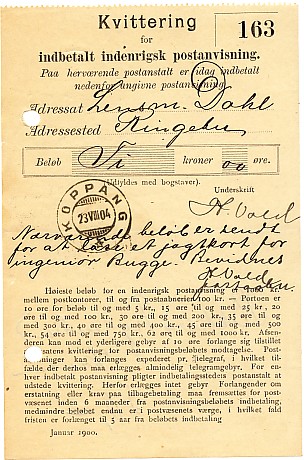 Kvittering
163
for
indbetalt indenrigsk postanvisning.
Paa herværende postanstalt er idag indbetalt
nedenfor angivne postanvisning.
Adressat Lensm. Dahl
Adressested Ringebu
Beløb Ti kroner 00 øre.
(Udfyldes med bogstaver).
Underskrift
KOPPANG
23 VIII 04
Nærværende beløb er sendt
for at løse et jagtkort for
ingeniør Bugge. Bevidnes
Høieste beløb for en indenrigsk postanvisning er 1000 kr.
mellem postkontorer, til og fra postaabnerier 100 kr. — Portoen er
10 øre for beløb til og med 5 kr., 15 øre til og med 25 kr., 20
øre til og med 100 kr., 30 øre til og med 200 kr., 35 øre til og
med 300 kr., 40 øre til og med 400 kr., 45 øre til og med 500
kr., 54 øre til og med 750 kr., 62 øre til og med 1000 kr. Afsen-
deren kan mod et yderligere gebyr af 10 øre forlange sig tilstillet
sens kvittering for postanvisningsbeløbets modtagelse. Post-
anvisninger kan forlanges expederet pr. telegraf, i hvilket til-
fælde der derhos maa erlægges almindelig telegramgebyr. For en-
hver indbetalt postanvisning pligter indbetalingsstedets postanstalt at
udstede kvittering. Herfor erlægges intet gebyr. Forlangender om
erstatning eller krav paa tilbagebetaling maa fremsættes for post-
væsenet inden 6 maaneder fra postanvisningsbeløbets indbetaling,
medmindre beløbet endnu er i postvæsenets værge, i hvilket fald
fristen er forlænget til 5 aar fra beløbets indbetaling
Januar 1900.